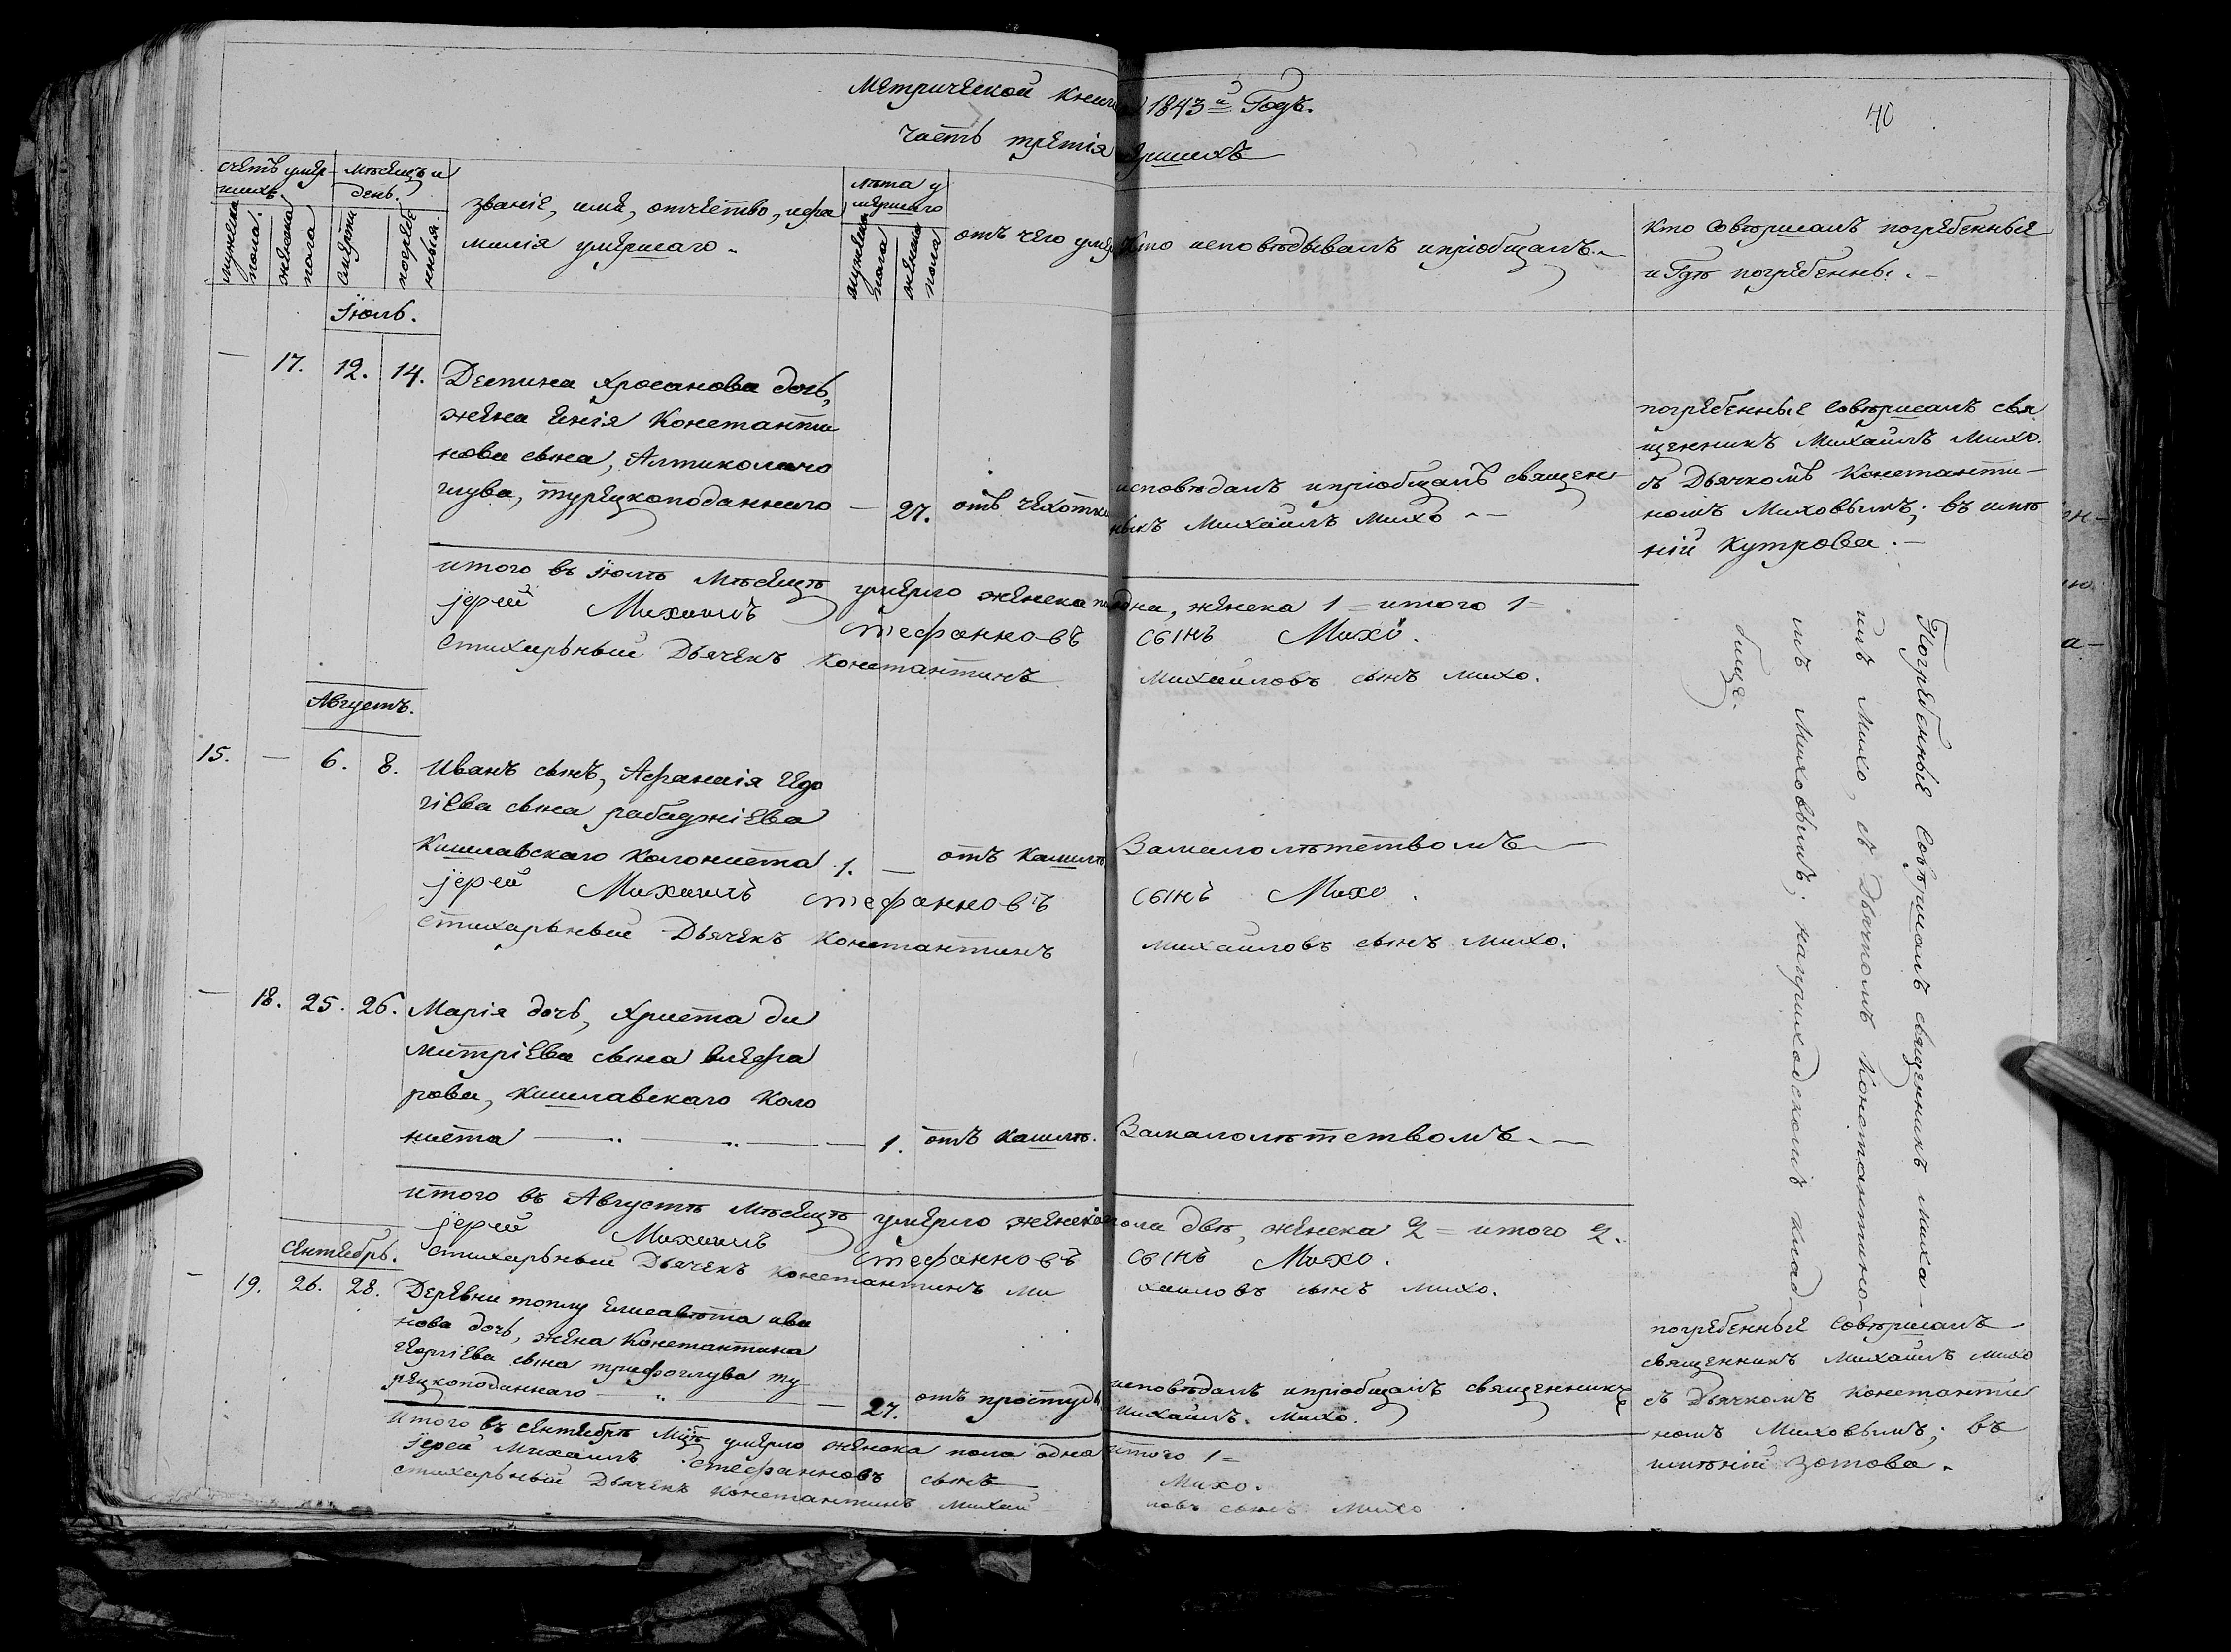 Метрической книги 1843й Годъ.
40
Часть третія умершихъ
счетъ умер-
шихъ.
мѣсяцъ и
день.
мужеска
пола.
женска
пола
смерти
погребе
ныія.
званіе, имя, отчество, ифа
милія умершаго.
лѣта у
мершаго
мужеска
пола
женска
пола
отъ чего умер
Кто исповѣдывалъ ипріобщалъ.
Кто Совершалъ погребенные
и Гдѣ погребенны.
Іюль.
— 17. 12. 14. Деспина Хросанова дочь,
жена Енія Константи
нова сына,
глува, турецкоподаннаго — 27. отъ чехотки
исповѣдалъ ипріобщалъ священ
никъ Михаилъ Михо
погребенные Совершалъ свя
щенникъ Михаилъ Михо.
съ Дьячкомъ Константи-
номъ Миховымъ; въ имѣ
ніи Кутрова.
итого въ Іюлѣ Мѣсяцѣ умерло женска пола одна, женска 1 = итого 1 =
Іерей Михаилъ Стефанновъ сынъ Михо.
Стихарьный Дьячекъ Константинъ Михаиловъ сынъ Михо.
Августъ.
15. — 6. 8. Иванъ сынъ, Афанасія Гедр
гіева сына рабаджіева
Кишлавскаго Колониста 1. — отъ Кашлѣ
Замалолѣтствомъ
Іерей Михаилъ Стефанновъ сынъ Михо.
Стихарьный Дьячекъ Константинъ Михаиловъ сынъ Михо.
— 18. 25. 26. Марія дочь, Христа ди
митріева сына
рова, Кишлавскаго Коло
ниста — 1. отъ Кашлѣ. Замалолѣтствомъ
Погребенные Совершалъ священникъ Миха-
илъ Михо, съ Дьячкомъ Константино-
мъ Миховымъ; наприходскомъ клад-
бище.
итого въ Августѣ Мѣсяцѣ умерло женска пола двѣ, женска 2 = итого 2.
Іерей Михаилъ Стефанновъ сынъ Михо.
Стихарьный Дьячекъ Константинъ Михаиловъ сынъ Михо.
Сентябрь.
— 19. 26. 28. Деревни топлу Елисавѣта ива
нова дочь, жена Константина
Георгіева сына трифоглува ту
рецкоподаннаго — 27. отъ простуды
исповѣдалъ ипріобщалъ священникъ
Михаилъ Михо.
погребенные Совершалъ
священникъ Михаилъ Михо
съ Дьячкомъ Константи
номъ Миховымъ; въ
имѣніи Зотова.
Итого въ Сентябрѣ Мцѣ умерло женска пола одна итого 1 =
Іерей Михаилъ Стефанновъ сынъ Михо.
Стихарьный Дьячекъ Константинъ Михаиловъ сынъ Михо